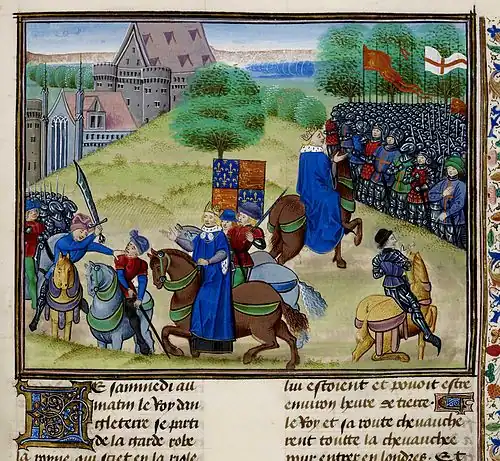 E sammedi au
matin le Roy dan
gleterre se parti
de la garde robe
la royne qui siet en la riole
lui estoient et povoit estre
environ heure de tierce.
le Roy et sa route chevauche
rent toutte la chevauchee
pour entrer en londres. Et